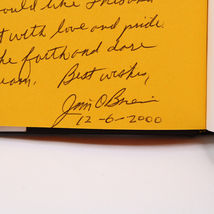 ould like
t with love and pride
he faith and dare
eam. Best wishes,
Jim O'Brien
12-6-2000